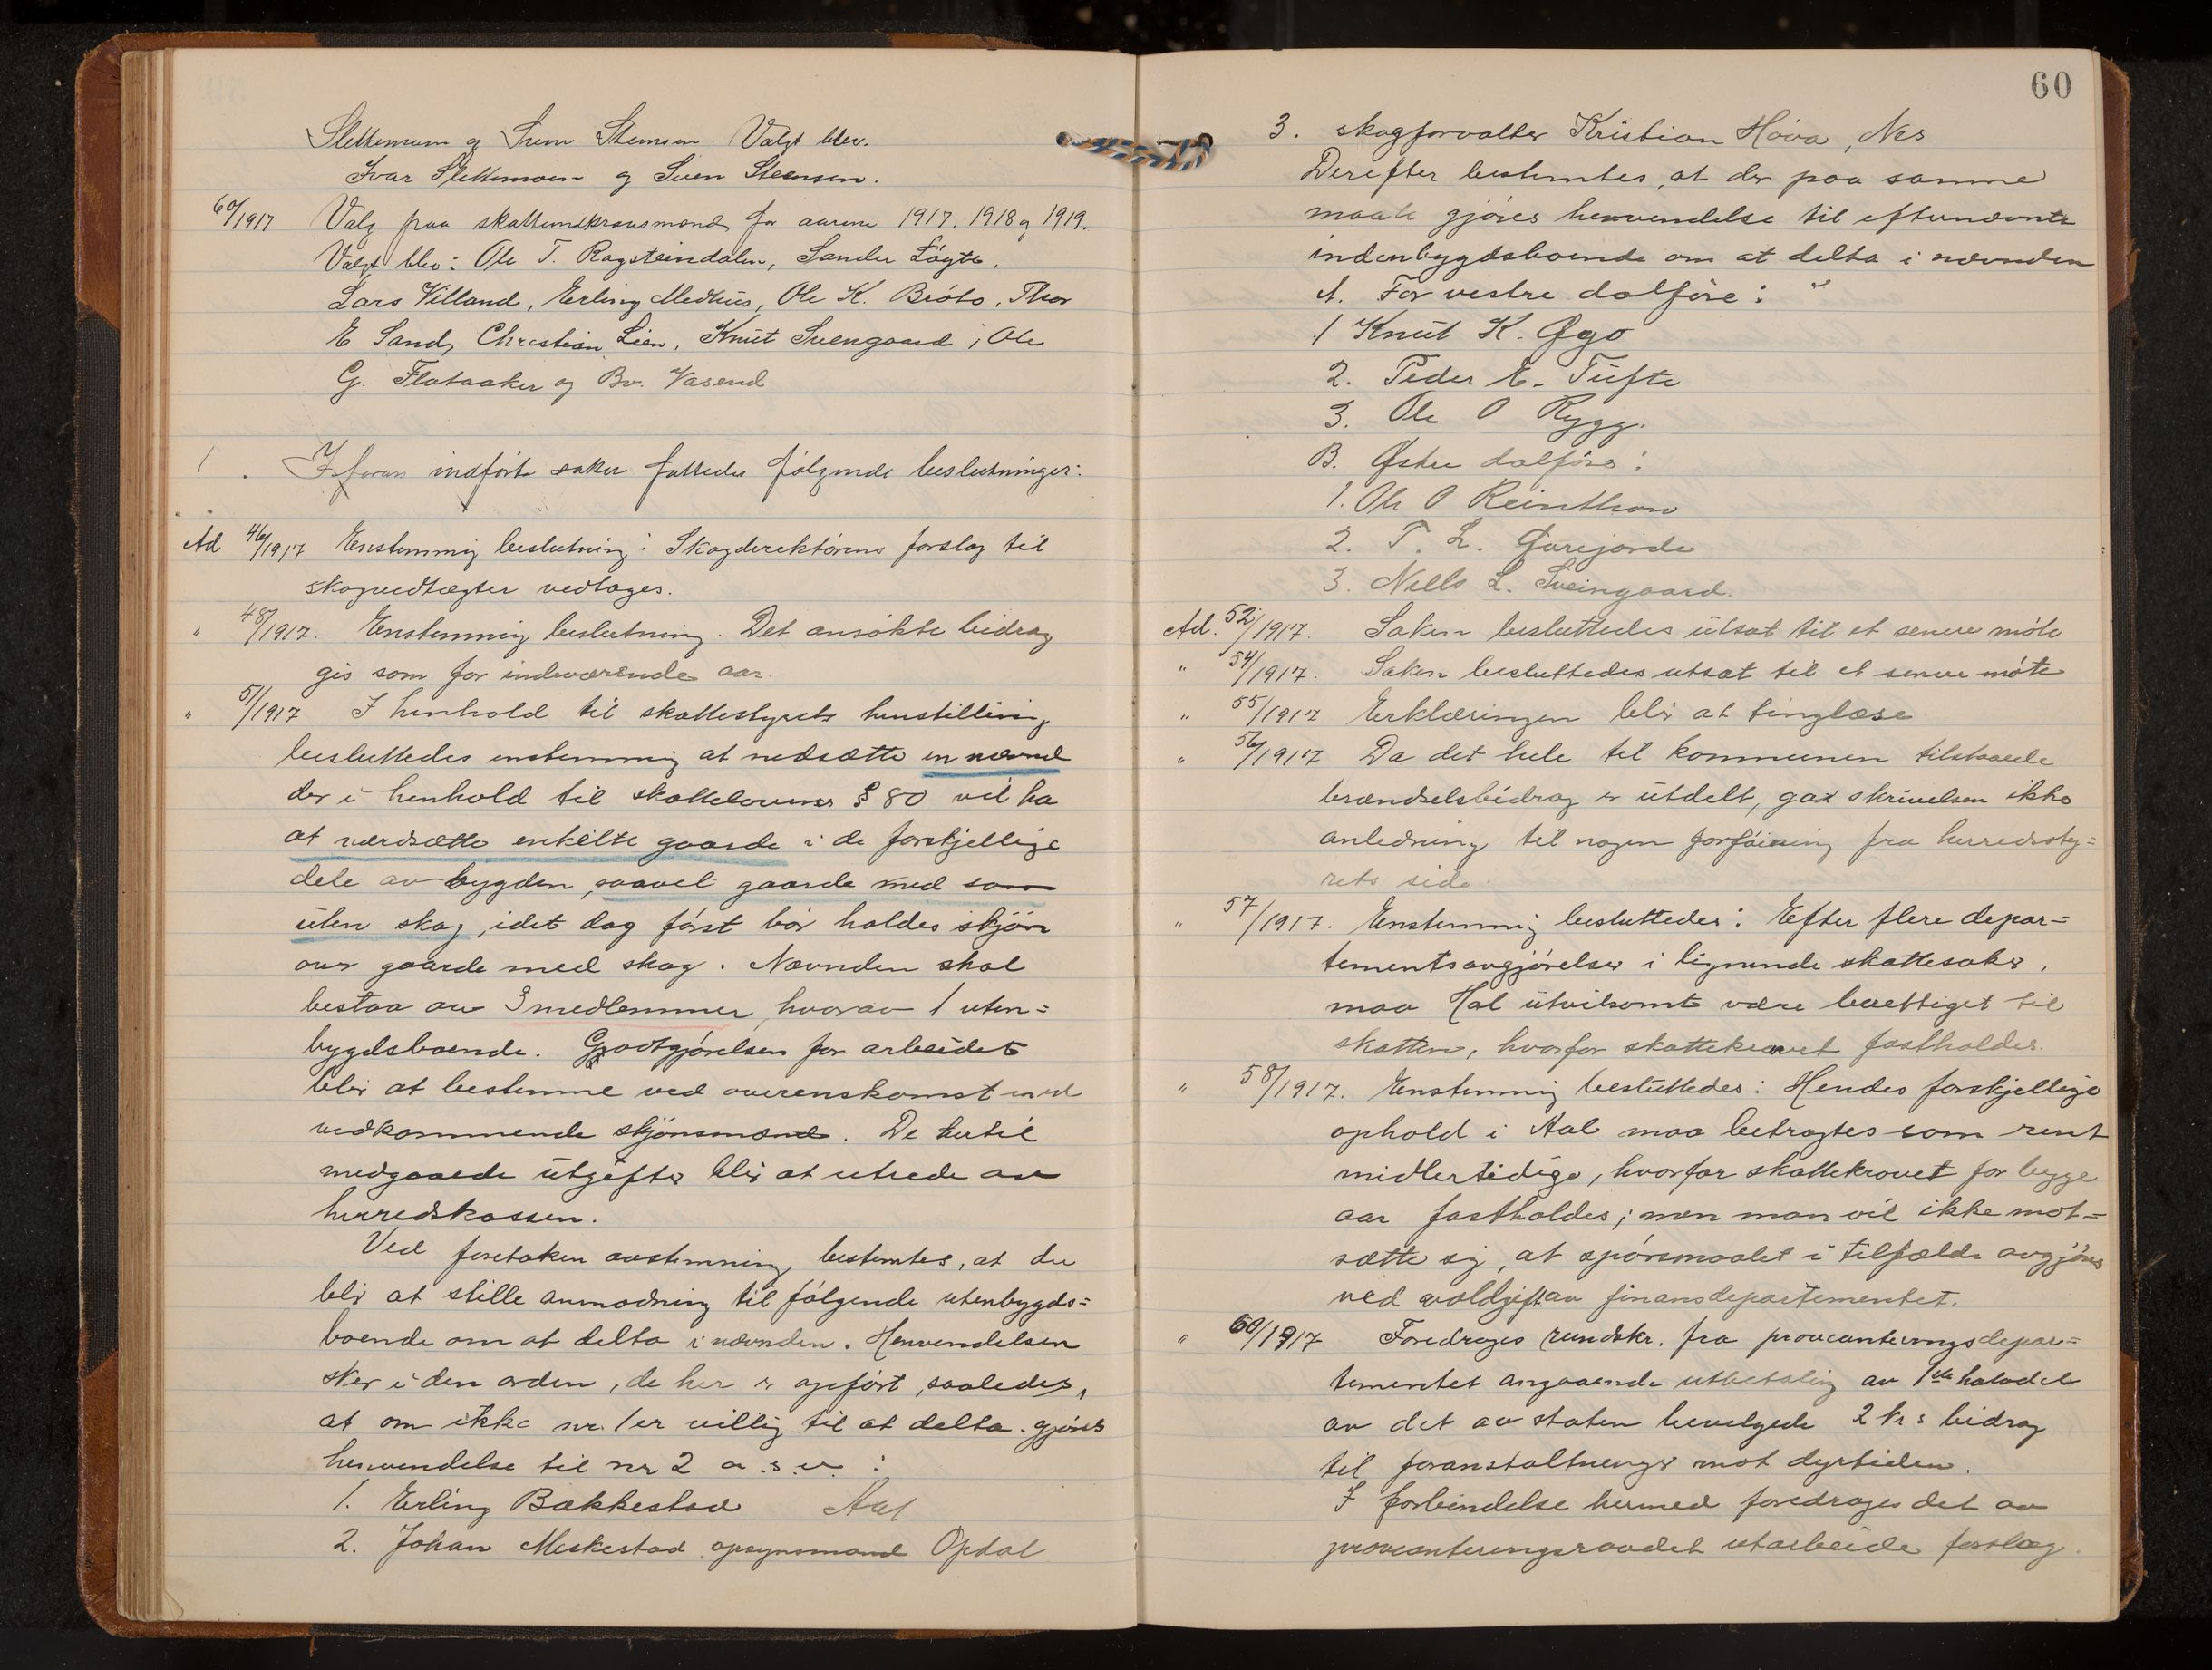 Slettemoen og Sven Stensen Valgt blev.
Ivar Slettemoen og Sven Steensen.
60/1917 Valg paa skatteundkravsmænd for aarene 1917, 1918 og 1919.
Valgt blev: Ole T. Ragsteindalen, Sander Løgte,
Lars Villand, Erling Medhus, Ole K. Bróto, Thor
E Sand, Christian Lien, Knut Svengaard, Ole
G. Flataaker og Br. Vasend
1. I foran indførte saker fattedes følgende beslutninger:
Ad 46/1917 Enstemmig beslutning: Skogdirektørens forslag til
skogvedtægter vedtages.
" 48/1917. Enstemmig beslutning. Det ansøkte bidrag
gis som for indeværende aar.
" 51/1917 I henhold til skattestyrets henstilling
besluttedes enstemmig at nedsætte en nævnd
der i henhold til skattelovens § 80 vil ha
at værdsætte enkelte gaarde i de forskjellige
dele av bygden, saavel gaarde med som
uten skog, idet dog først bør holdes skjøn
over gaarde med skog. Nævnden skal
bestaa av 3 medlemmer, hvorav 1 uten=
bygdsboende. Godtgjørelsen for arbeidet
blir at bestemme ved overenskomst med
vedkommende skjønsmænd. De hertil
medgaaede utgifter blir at utrede av
herredskassen.
Ved foretaken avstemning bestemtes, at der
blir at stille anmodning til følgende utenbygds=
boende om at delta i nævnden. Henvendelsen
sker i den orden, de her er opført, saaledes,
at om ikke nr. 1 er villig til at delta, gjøres
henvendelse til nr 2 o.s.v.:
1. Erling Bækkestad Aal
2. Johan Meskestad opsynsmand Opdal
60
3. skogforvalter Kristian Hova, Nes
Derefter bestemtes, at der paa samme
maate gjøres henvendelse til efternævnte
indenbygdsboende om at delta i nævnden
A. For vestre dalføre:
1 Knut K. Øgo
2. Peder E. Tufte
3. Ole O Rygg.
B. Østre dalføre:
1. Ole O Reinthon
2. T. L. Gurejorde
3. Nills L. Sveingaard.
Ad. 52/1917. Saken besluttedes utsat til et senere møte
" 54/1917. Saken besluttedes utsat til et senere møte
" 55/1917 Erklæringen blir at tinglæse
" 56/1917 Da det hele til kommunen tilstaaede
brændselsbidrag er utdelt, gav skrivelsen ikke
anledning til nogen forføining fra herredssty=
rets side.
" 57/1917. Enstemmig besluttedes: Efter flere depar=
tementsavgjørelser i lignende skattesaker,
maa Hol utvilsomt være berettiget til
skatten, hvorfor skattekravet fastholdes.
" 58/1917. Enstemmig besluttedes: Hendes forskjellige
ophold i Aal maa betragtes som rent
midlertidige, hvorfor skattekravet for begge
aar fastholdes; men man vil ikke mot=
sætte sig, at spørsmaalet i tilfælde avgjøres
ved voldgift av finansdepartementet.
" 60/1917 Foredroges rundskr. fra provianteringsdepar=
tementet angaaende utbetaling av 1ste halvdel
av det av staten bevilgede 2 Kr.s bidrag
til foranstaltninger mot dyrtiden.
I forbindelse hermed foredroges det av
provianteringsraadet utarbeide forslag.